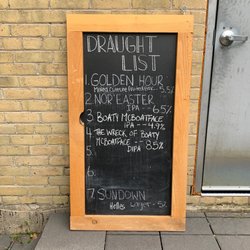 DRAUGHT
LIST
1. GOLDEN HOUR
5.5%
2. NOR'EASTER
IPA --- 6.5%
3. BOATY MCBOATFACE
IPA --- 4.9%
4. THE WRECK OF BOATY
MCBOATFACE -- 8.5%
5. DIPA
6.
7. SUNDOWN
Helles Lager - 5%